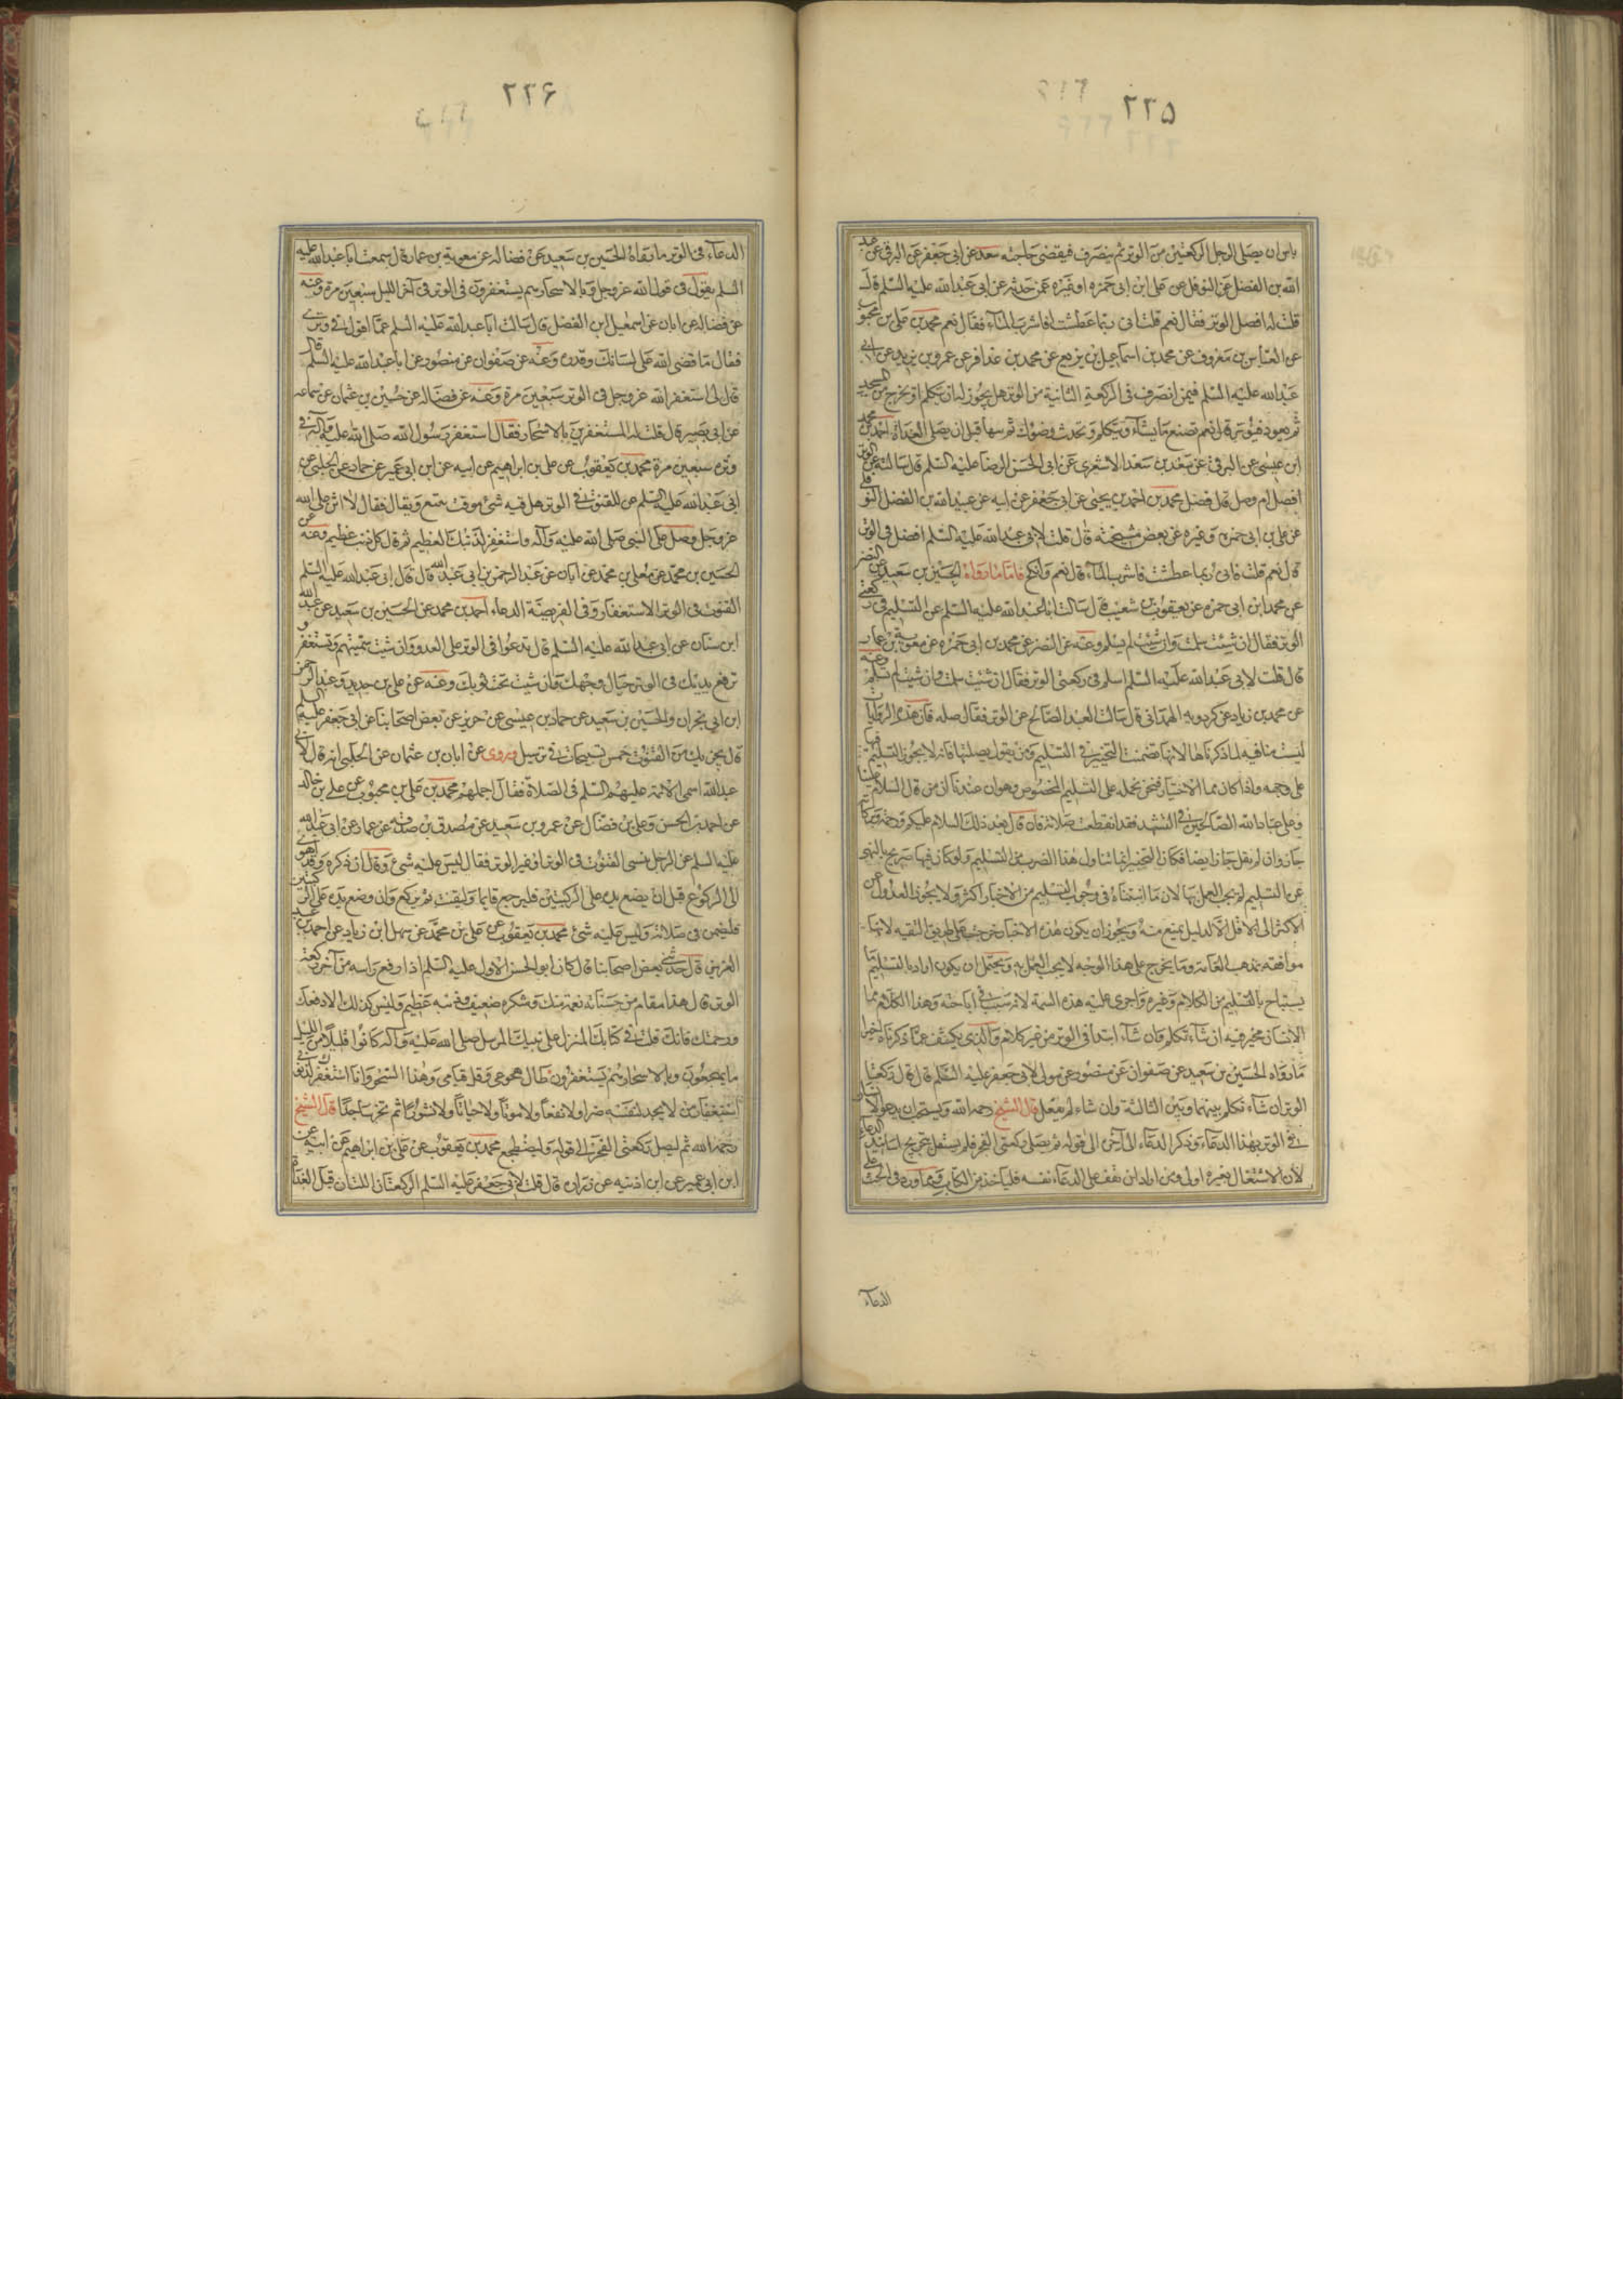 ٢٢٥
باس ان يصلى الرجل الركعتين من الوتر ثم ينصرف فيقضى حاجته سعد عن ابى جعفر عن البرقى عن عبد
الله بن الفضل عن النوفلى عن على ابن ابى حمزه او غيره عمن حدثه عن ابى عبد الله عليه السلم قال
قلت له افصل الوتر فقال نعم قلت انى ربما عطشت افاشرب الماء فقال نعم محمد بن على بن محبوب
عن العباس بن معروف عن محمد بن اسماعيل بن بزيع عن محمد بن عذافر عن عمر بن يزيد عن ابى
عبد الله عليه السلم فيمن انصرف فى الركعة الثانية من الوتر هل يجوز له ان يتكلم او يخرج من المسجد
ثم يعود فيوتر قال نعم تصنع ما يشاء ويتكلم وتحدث وضوءك ثم تمها قبل ان يصلى الغداة احمد بن محمد
ابن عيسى عن البرقى عن سعد بن سعد الاشعرى عن ابى الحسن الرضا عليه السلم قال سالته عن الوتر
افصل ام وصل قال فصل محمد بن احمد بن يحيى عن ابى جعفر عن ابيه عن عبد الله بن الفضل النوفلى
عن على بن ابى حمزه وغيره عن بعض مشيخته قال قلت لابى عبد الله عليه السلم افصل فى الوتر
قال نعم قلت فانى ربما عطشت فاشرب الماء قال نعم وانكح فاما ما رواه الحسين بن سعيد عن النضر
عن محمد ابن ابى حمزه عن يعقوب بن شعيب قال سالت ابا عبد الله عليه السلم عن التسليم فى ركعتى
الوتر فقال ان شئت سلمت وان شئت لم يسلم وعنه عن النضر عن محمد بن ابى حمزه عن معوية بن عمار
قال قلت لابى عبد الله عليه السلم اسلم فى ركعتى الوتر فقال ان شئت سلمت وان شئت لم تسلم وعنه
عن محمد بن زياد عن كردويه الهمدانى قال سالت العبد الصالح عن الوتر فقال صله فان هذه الروايات
ليست منافيه لما ذكرناها لانها تضمنت التخيير فى التسليم ومن يقول بصلتها فانه لا يجوز التسليم فيها
على وجه واذا كان مما الاختيار فنحن نحمله على التسليم المخصوص وهو ان عندنا ان من قال السلام علينا
وعلى عباد الله الصالحين فى التشهد فقد انقطعت صلاته فان قال بعد ذلك السلام عليكم ورحمة وبركاته
جاز وان لم يقل جاز ايضا فكان التخيير انما تناول هذا الضرب من التسليم ولو كان فيها صريح بالنهى
عن التسليم لم يجب العمل بها لان ما اثبتناه فى وجوب التسليم من الاخبار اكثر ولا يجوز العدول عن
الاكثر الى الاقل الا لدليل يمنع منه ويجوز ان يكون هذه الاخبار خرجت على طريق التقيه لانها
موافقه بمذهب العامة وما يخرج على هذا الوجه لا يجب العمل به ويحتمل ان يكون اراد بالتسليم ما
يستباح بالتسليم من الكلام وغيره واجرى عليه هذه السمة لانه سبب فى اباحته وهذا الكلام مما
الانسان مخير فيه ان شاء تكلم وان شاء ابتدا فى الوتر من غير كلام والذى يكشف عما ذكرناه ايضا
ما رواه الحسين بن سعيد عن صفوان عن منصور عن مولى لابى جعفر عليه السلم قال قال ركعتا
الوتر ان شاء تكلم بينهما وبين الثالثة وان شاء لم يفعل قال الشيخ رحمه الله ويستحب ان يدعو الانسان
فى الوتر بهذا الدعاء وذكر الدعاء الى آخره الى قوله ثم يصلى ركعتى الفجر فلم نشتغل بتخريج اسانيد الدعاء
لان الاشتغال بغيره اولى ومن اراد ان يقف على الدعاء نفسه فلياخذه من الكتاب ومما ورد فى الحث على
الدعاء
٢٢۶
الدعاء فى الوتر ما رواه الحسين بن سعيد عن فضاله عن معوية بن عمار قال سمعت ابا عبد الله عليه
السلم يقول فى قول الله عز وجل وبالاسحار هم يستغفرون فى الوتر فى آخر الليل سبعين مرة وعنه
عن فضاله عن ابان عن اسمعيل ابن الفضل قال سالت ابا عبد الله عليه السلم عما اقول فى وترى
فقال ما قضى الله على لسانك وقدره وعنه عن صفوان عن منصور عن ابا عبد الله عليه السلم قال
قال لى استغفر الله عز وجل فى الوتر سبعين مرة وعنه عن فضاله عن حسين بن عثمان عن سماعه
عن ابى بصير قال قلت له المستغفرين بالاسحار فقال استغفر رسول الله صلى الله عليه وآله فى
وتره سبعين مرة محمد بن يعقوب عن على بن ابراهيم عن ابيه عن ابن ابى عمير عن حماد عن الحلبى عن
ابى عبد الله عليه السلم عن القنوت فى الوتر هل فيه شئ موقت يتبع ويقال فقال لا اثن على الله
عز وجل وصل على النبى صلى الله عليه وآله واستغفر لذنبك العظيم ثم قال كل ذنب عظيم وعنه عن
الحسين بن محمد عن معلى بن محمد عن ابان عن عبد الرحمن بن ابى عبد الله قال قال ابى عبد الله عليه السلم
القنوت فى الوتر الاستغفار وفى الفريضة الدعاء احمد بن محمد عن الحسين بن سعيد عن عبد الله
ابن سنان عن ابى عبد الله عليه السلم قال تدعوا فى الوتر على العدو وان شيت سميتهم وتستغفر و
ترفع يديك فى الوتر حيال وجهك وان شيت تحت ثوبك وعنه عن على بن حديد وعبد الرحمن
ابن ابى نجران والحسين بن سعيد عن حماد بن عيسى عن حريز عن بعض اصحابنا عن ابى جعفر عليه السلم
قال يجزيك من القنوت خمس تسبيحات فى ترسيل وروى عن ابان بن عثمان عن الحلبى انه قال لابى
عبد الله اسمى الائمة عليهم السلم فى الصلاة فقال اجملهم محمد بن على بن محبوب عن على بن خالد
عن احمد بن الحسن وعلى بن فضال عن عمرو بن سعيد عن مصدق بن صدقه عن عمار عن ابى عبد الله
عليه السلم عن الرجل ينسى القنوت فى الوتر او غير الوتر فقال ليس عليه شئ وقال ان ذكره وقد اهوى
الى الركوع قبل ان يضع يديه على الركبتين فليرجع قايما وليقنت ثم يركع وان وضع يديه على الركبتين
فليمض فى صلاته وليس عليه شئ محمد بن يعقوب عن على بن محمد عن سهل ابن زياد عن احمد بن عبد
العزيز قال حدثنى بعض اصحابنا قال كان ابو الحسن الاول عليه السلم اذا رفع راسه من آخر ركعة
الوتر قال هذا مقام من حسناته نعمة منك وشكره ضعيف وذنبه عظيم وليس كذلك الا دفعك
ورحمتك فانك قلت فى كتابك المنزل على نبيك المرسل صلى الله عليه وآله كانوا قليلا من الليل
ما يهجعون وبالاسحار هم يستغفرون طال هجوعى وقل قيامى وهذا السحر وانا استغفرك لذنوبى
استغفار من لا يجد لنفسه ضرا ولا نفعا ولا موتا ولا حياتا ولا نشورا ثم تخر ساجدا قال الشيخ
رحمه الله ثم ليصل ركعتى الفجر الى قوله وليضطجع محمد بن يعقوب عن على بن ابراهيم عن ابيه عن
ابن ابى عمير عن ابن اذينه عن زراره قال قلت لابى جعفر عليه السلم الركعتان اللتان قبل الغداة